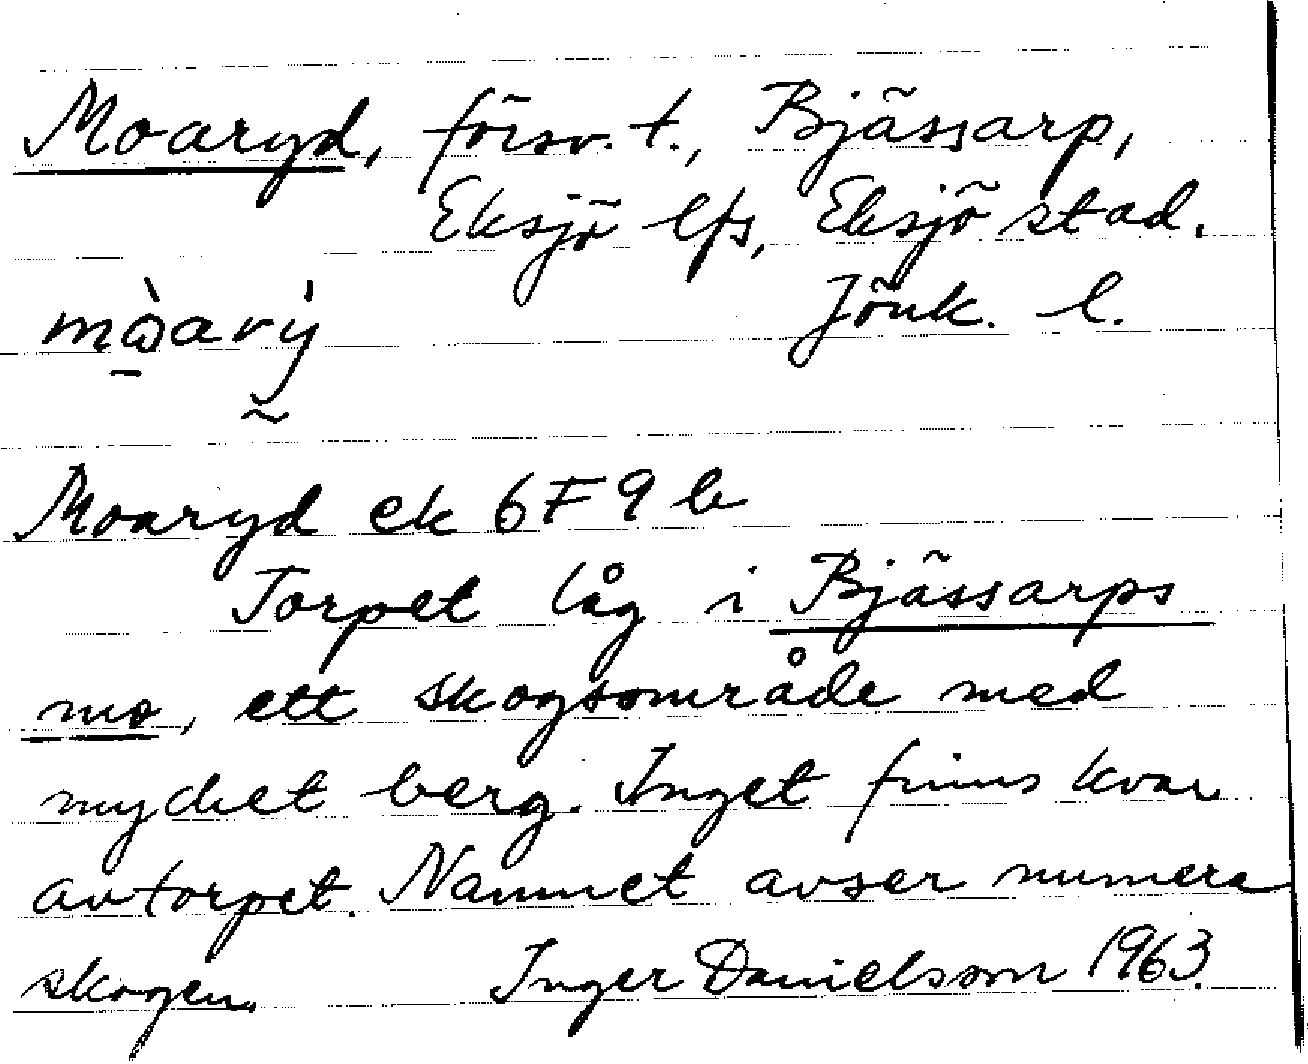 Moaryd, försv. t., Bjässarp,
Eksjö lfs, Eksjö stad.
Jönk. l.
Moaryd ek 6F9b
Torpet låg i Bjässarps
mo, ett skogsområde med
mycket berg. Inget finns kvar
av torpet. Namnet avser numera
skogen. Inger Danielsson 1963.